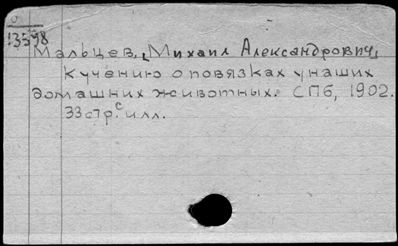 13598
Мальцев, [Михаил Александрович]
К учению о повязках у наших
домашних животных. СПб, 1902.
33 стр. с илл.